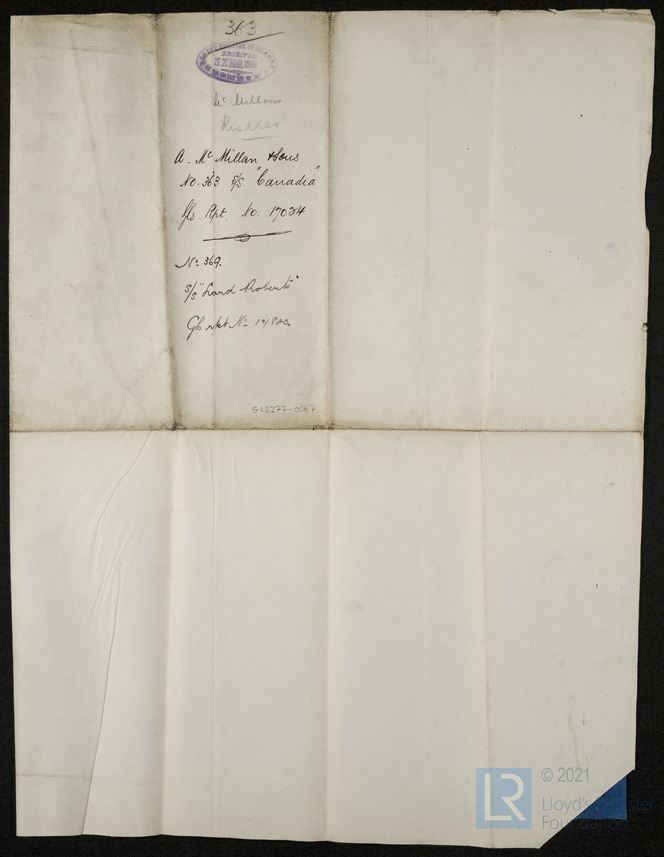 363
RECEIVED
Mc Millan
Rudder
A. Mc Millan & Sons
No. 363 S/S "Canadia"
Gls. Rpt. No. 17034
No 369.
S/S "Lord Roberts"
Gls rpt No
GLS277-0367
LR
© 2021
Lloyd's Register
Foundation